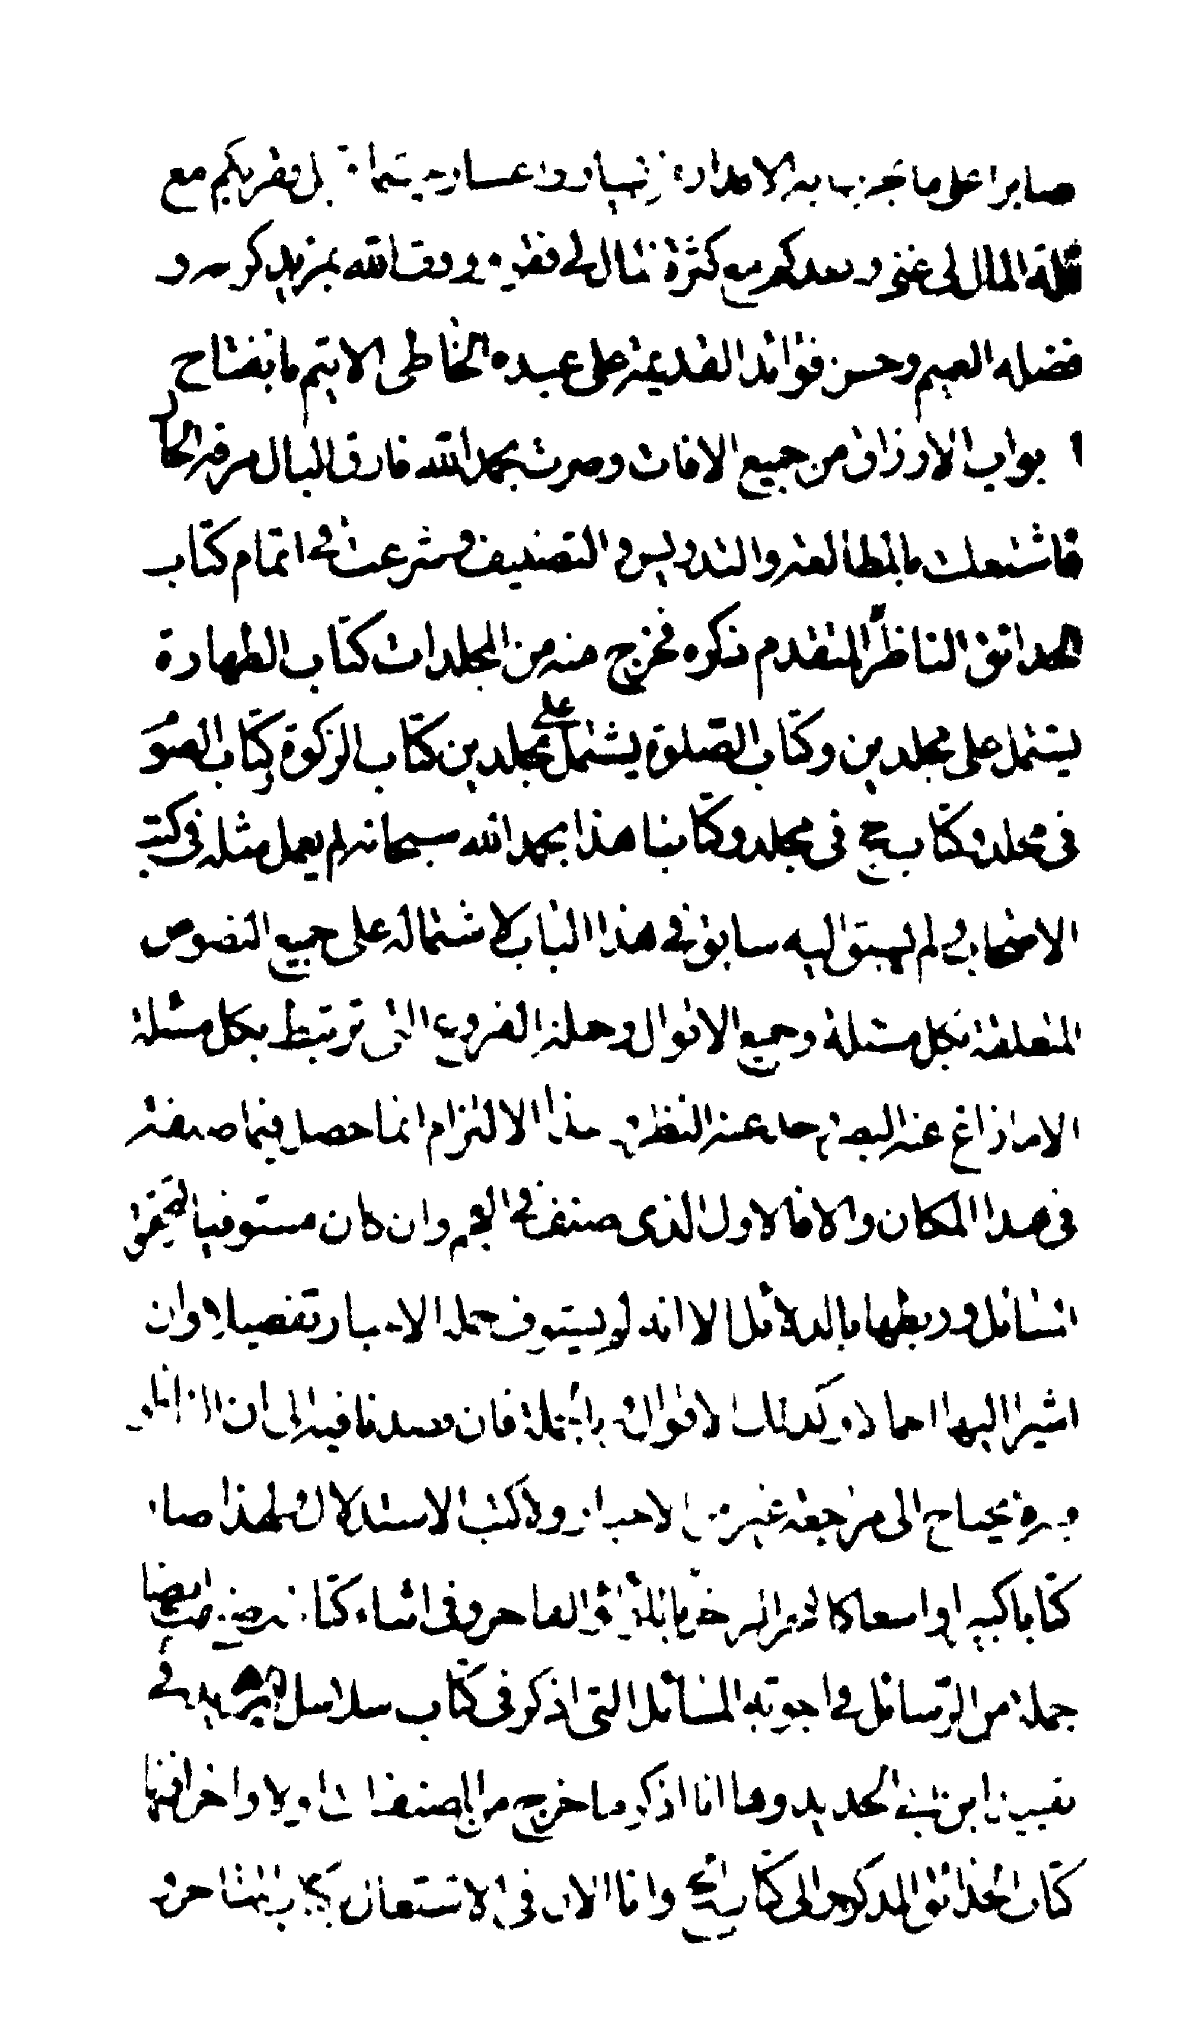 صابرا على ما تجري به الاقدار يسار واعسار بل وتفريكم مع
قلة المال لي غنى وبعدكم مع كثرة المال لي فقر ووفق الله بمزيد كرمه و
فضله العميم وحسن فوائد القديمة على عبده الخاطى الاثيم بانفتاح
ابواب الارزاق من جميع الافاق وصرت بحمد الله فارق البال مرفه الحال
فاشتغلت بالمطالعة والتدريس والتصنيف وشرعت في اتمام كتاب
الحدائق الناظرة المتقدم ذكره فخرج منه من المجلدات كتاب الطهارة
يشتمل على مجلدين وكتاب الصلوة يشتمل على مجلدين كتاب الزكوة وكتاب الصوم
في مجلد وكتاب حج في مجلد وكتابنا هذا بحمد الله سبحانه لم يعمل مثله في كتب
الاصحاب ولم يسبق اليه سابق في هذا الباب لاشتماله على جميع النصوص
المتعلقة بكل مسئلة وجميع الاقوال وجملة الفروع التي ترتبط بكل مسئلة
الا ما زاغ عنه البصر وحسر عنه النظر هذا الالتزام انما حصل فيما صنفته
في هذا المكان والا فالاول الذي صنف في العجم وان كان مستوفيا لتحقيق
المسائل وربطها بالدلائل الا انه لم يستوف جملة الاخبار تفصيلا وان
اشير اليها اجمالا وكذلك الاقوال وبالجملة فان قصدنا فيه الى ان الناظر
فيه لا يحتاج الى مراجعة غيره من الاخبار ولا كتب الاستدلال ولهذا صار
كتابا كبيرا واسعا كالبحر الزاخر باللؤلؤ الفاخر وفي اثناء كتابته صنفت ايضا
جملة من الرسائل في اجوبة المسائل التي اذكر في كتاب سلاسل الحديد في
تقييد ابن ابي الحديد وها انا اذكر ما خرج من المصنفات اولا واخرا فمنها
كتاب الحدائق المذكور الى كتاب الحج وانا الان في الاشتغال بكتاب المتاجر